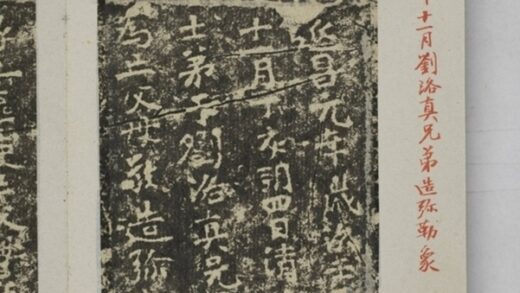 十一月劉洛真兄弟造弥勒象
延昌元年歲次
十一月丁亥朔四日清
士弟子劉洛真兄
為亡父母敬造弥